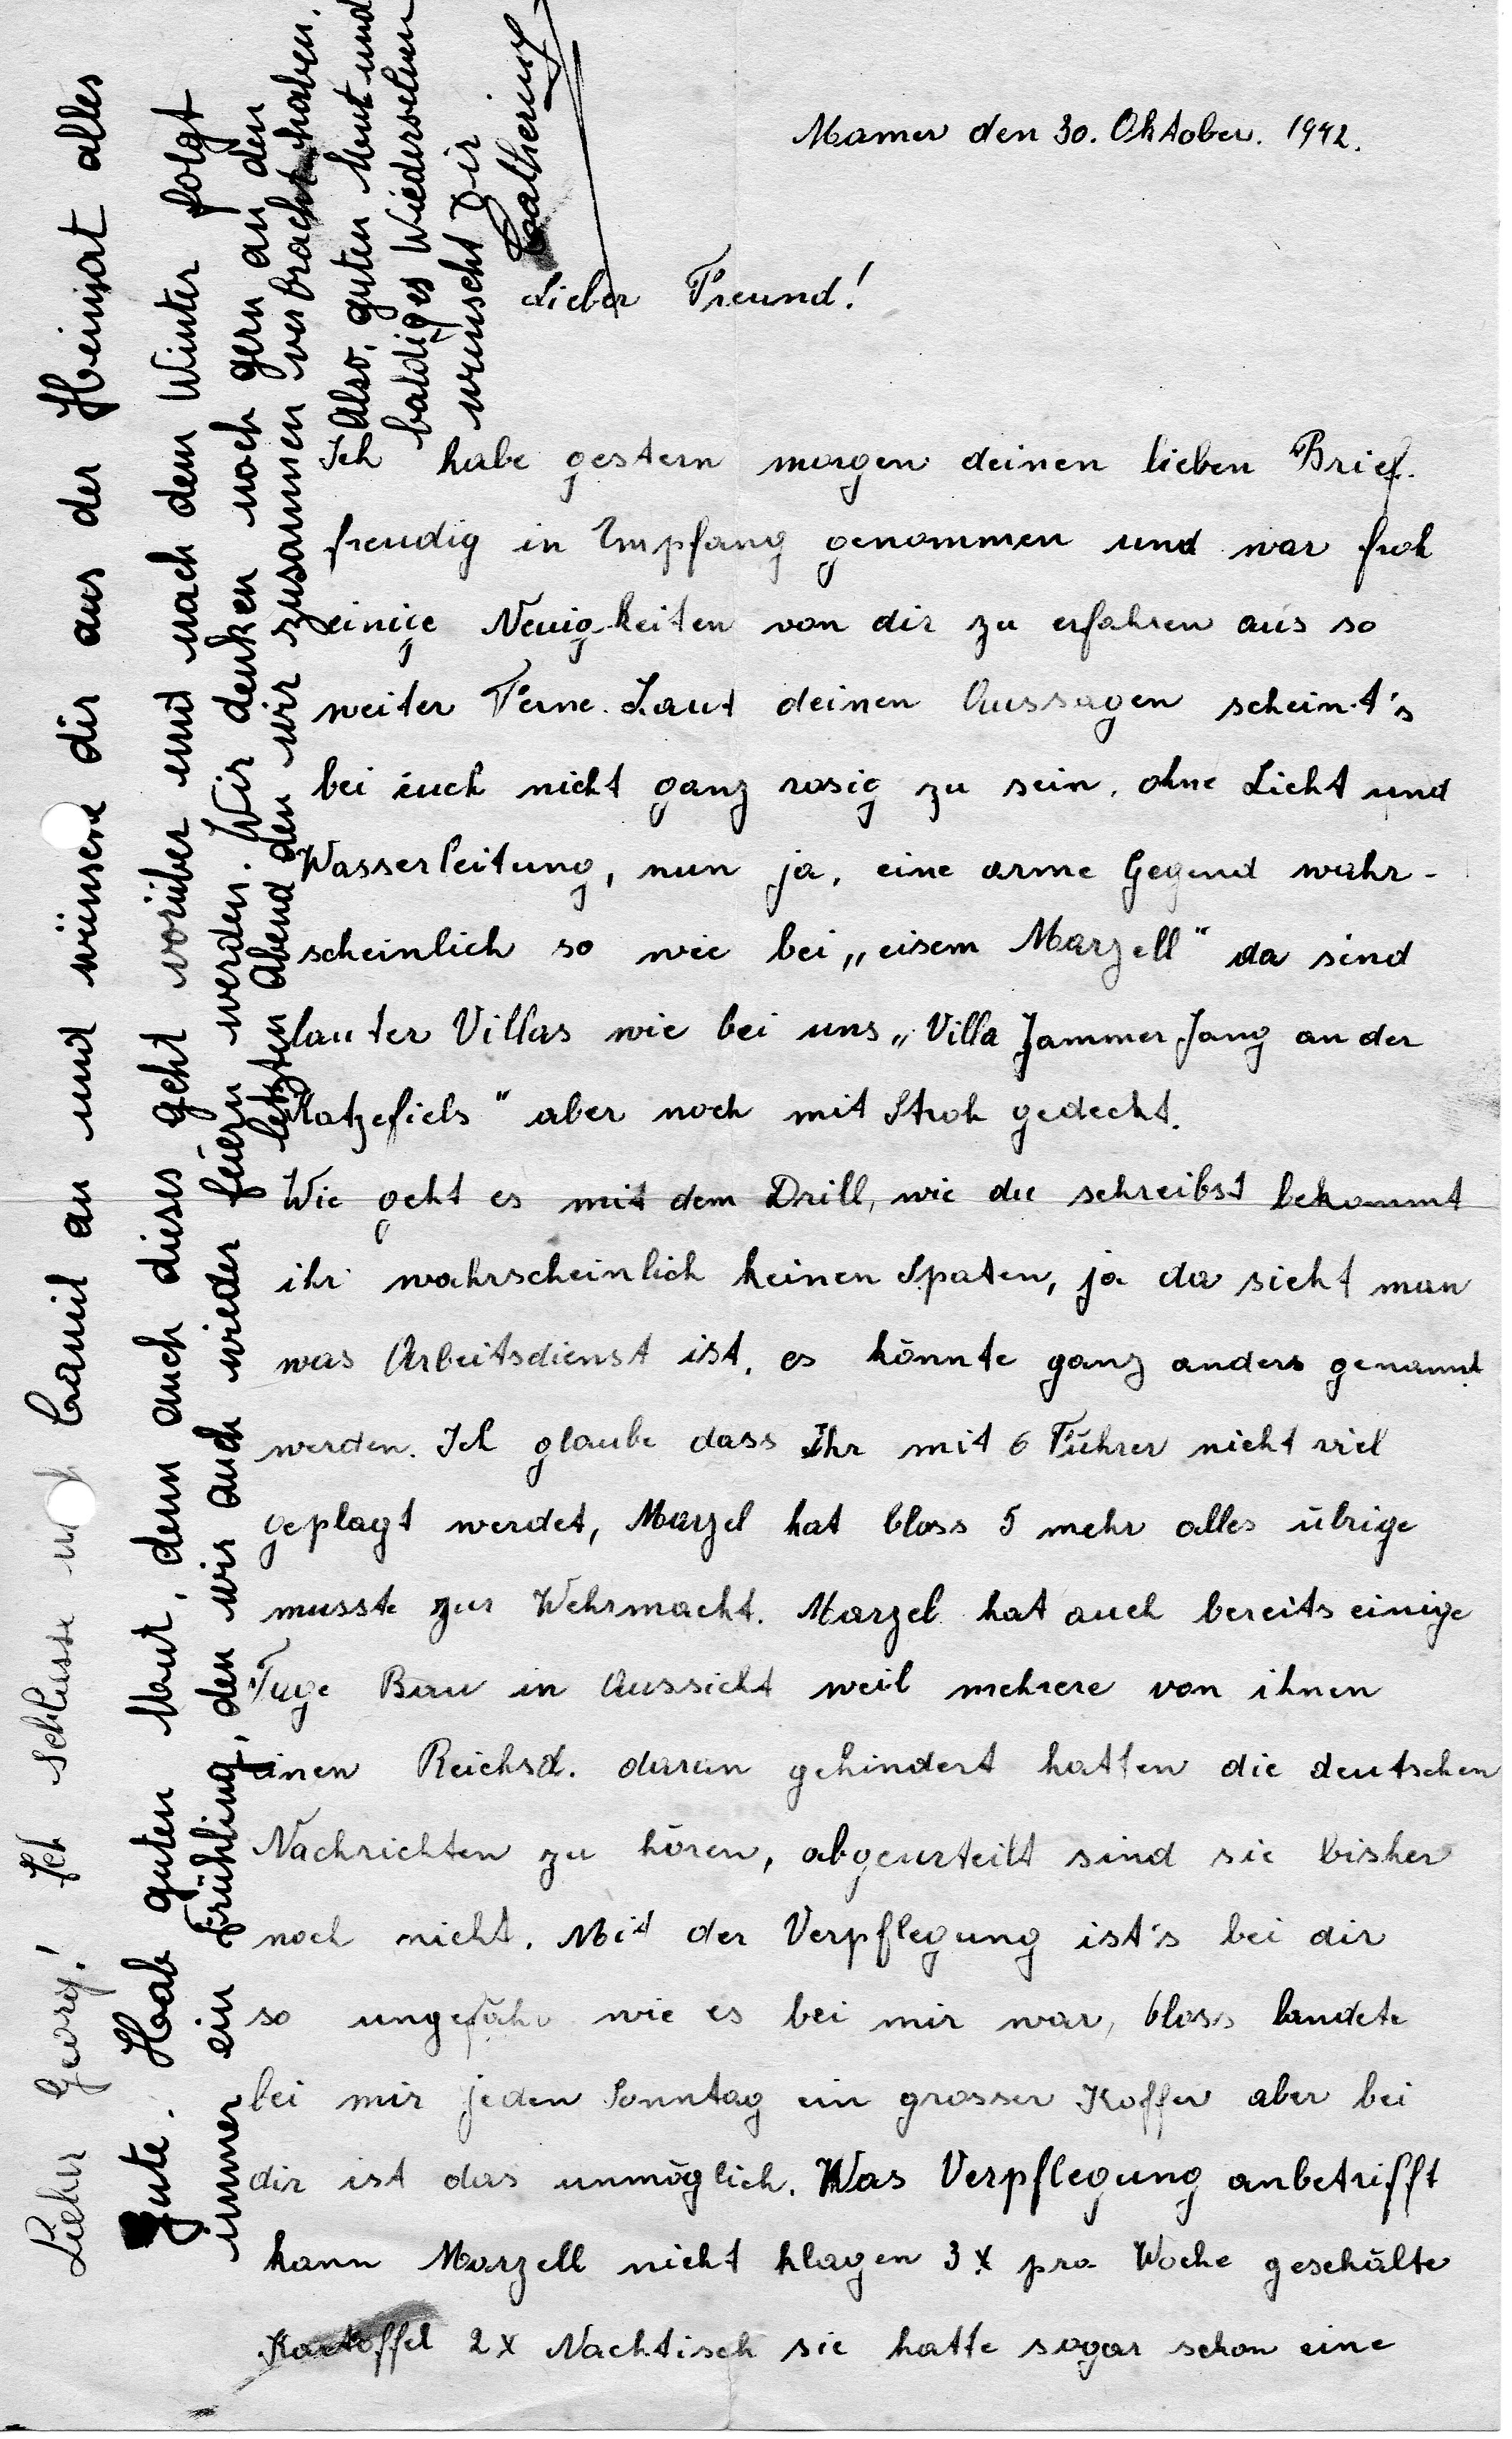 Mamer den 30. Oktober. 1942.
Lieber Freund!
Ich habe gestern morgen deinen lieben Brief.
freudig in Empfang genommen und war froh
einige Neuigkeiten von dir zu erfahren aus so
weiter Ferne. Laut deinen Aussagen scheint's
bei euch nicht ganz rosig zu sein, ohne Licht und
Wasserleitung, nun ja, eine arme Gegend wahr-
scheinlich so wie bei „eisem Marzell" da sind
lauter Villas wie bei uns „Villa Jammer Jang an der
Katzefiels" aber noch mit Stroh gedeckt.
Wie geht es mit dem Drill, wie du schreibst bekommt
ihr wahrscheinlich keinen Spaten, ja da sieht man
was Arbeitsdienst ist, es könnte ganz anders genannt
werden. Ich glaube dass Ihr mit 6 Führer nicht viel
geplagt werdet, Marzel hat bloss 5 mehr alles übrige
musste zur Wehrmacht. Marzel hat auch bereits einige
Tage Bau in Aussicht weil mehrere von ihnen
einen Reichsd. daran gehindert hatten die deutschen
Nachrichten zu hören, abgeurteilt sind sie bisher
noch nicht. Mit der Verpflegung ist's bei dir
so ungefähr wie es bei mir war, bloss landete
bei mir jeden Sonntag ein grosser Koffer aber bei
dir ist das unmöglich. Was Verpflegung anbetrifft
kann Marzell nicht klagen 3 x pro Woche geschälte
Kartoffel 2 x Nachtisch sie hatte sogar schon eine
Lieber Georg! Ich schliesse mich Camil an und wünsche dir aus der Heimat alles
Gute. Hab guten Mut, denn auch dieses geht vorüber und nach dem Winter folgt
immer ein Frühling, den wir auch wieder feiern werden. Wir denken noch gern an den
letzten Abend den wir zusammen verbracht haben.
Also, guten Mut und
baldiges Wiedersehen
wünscht Dir